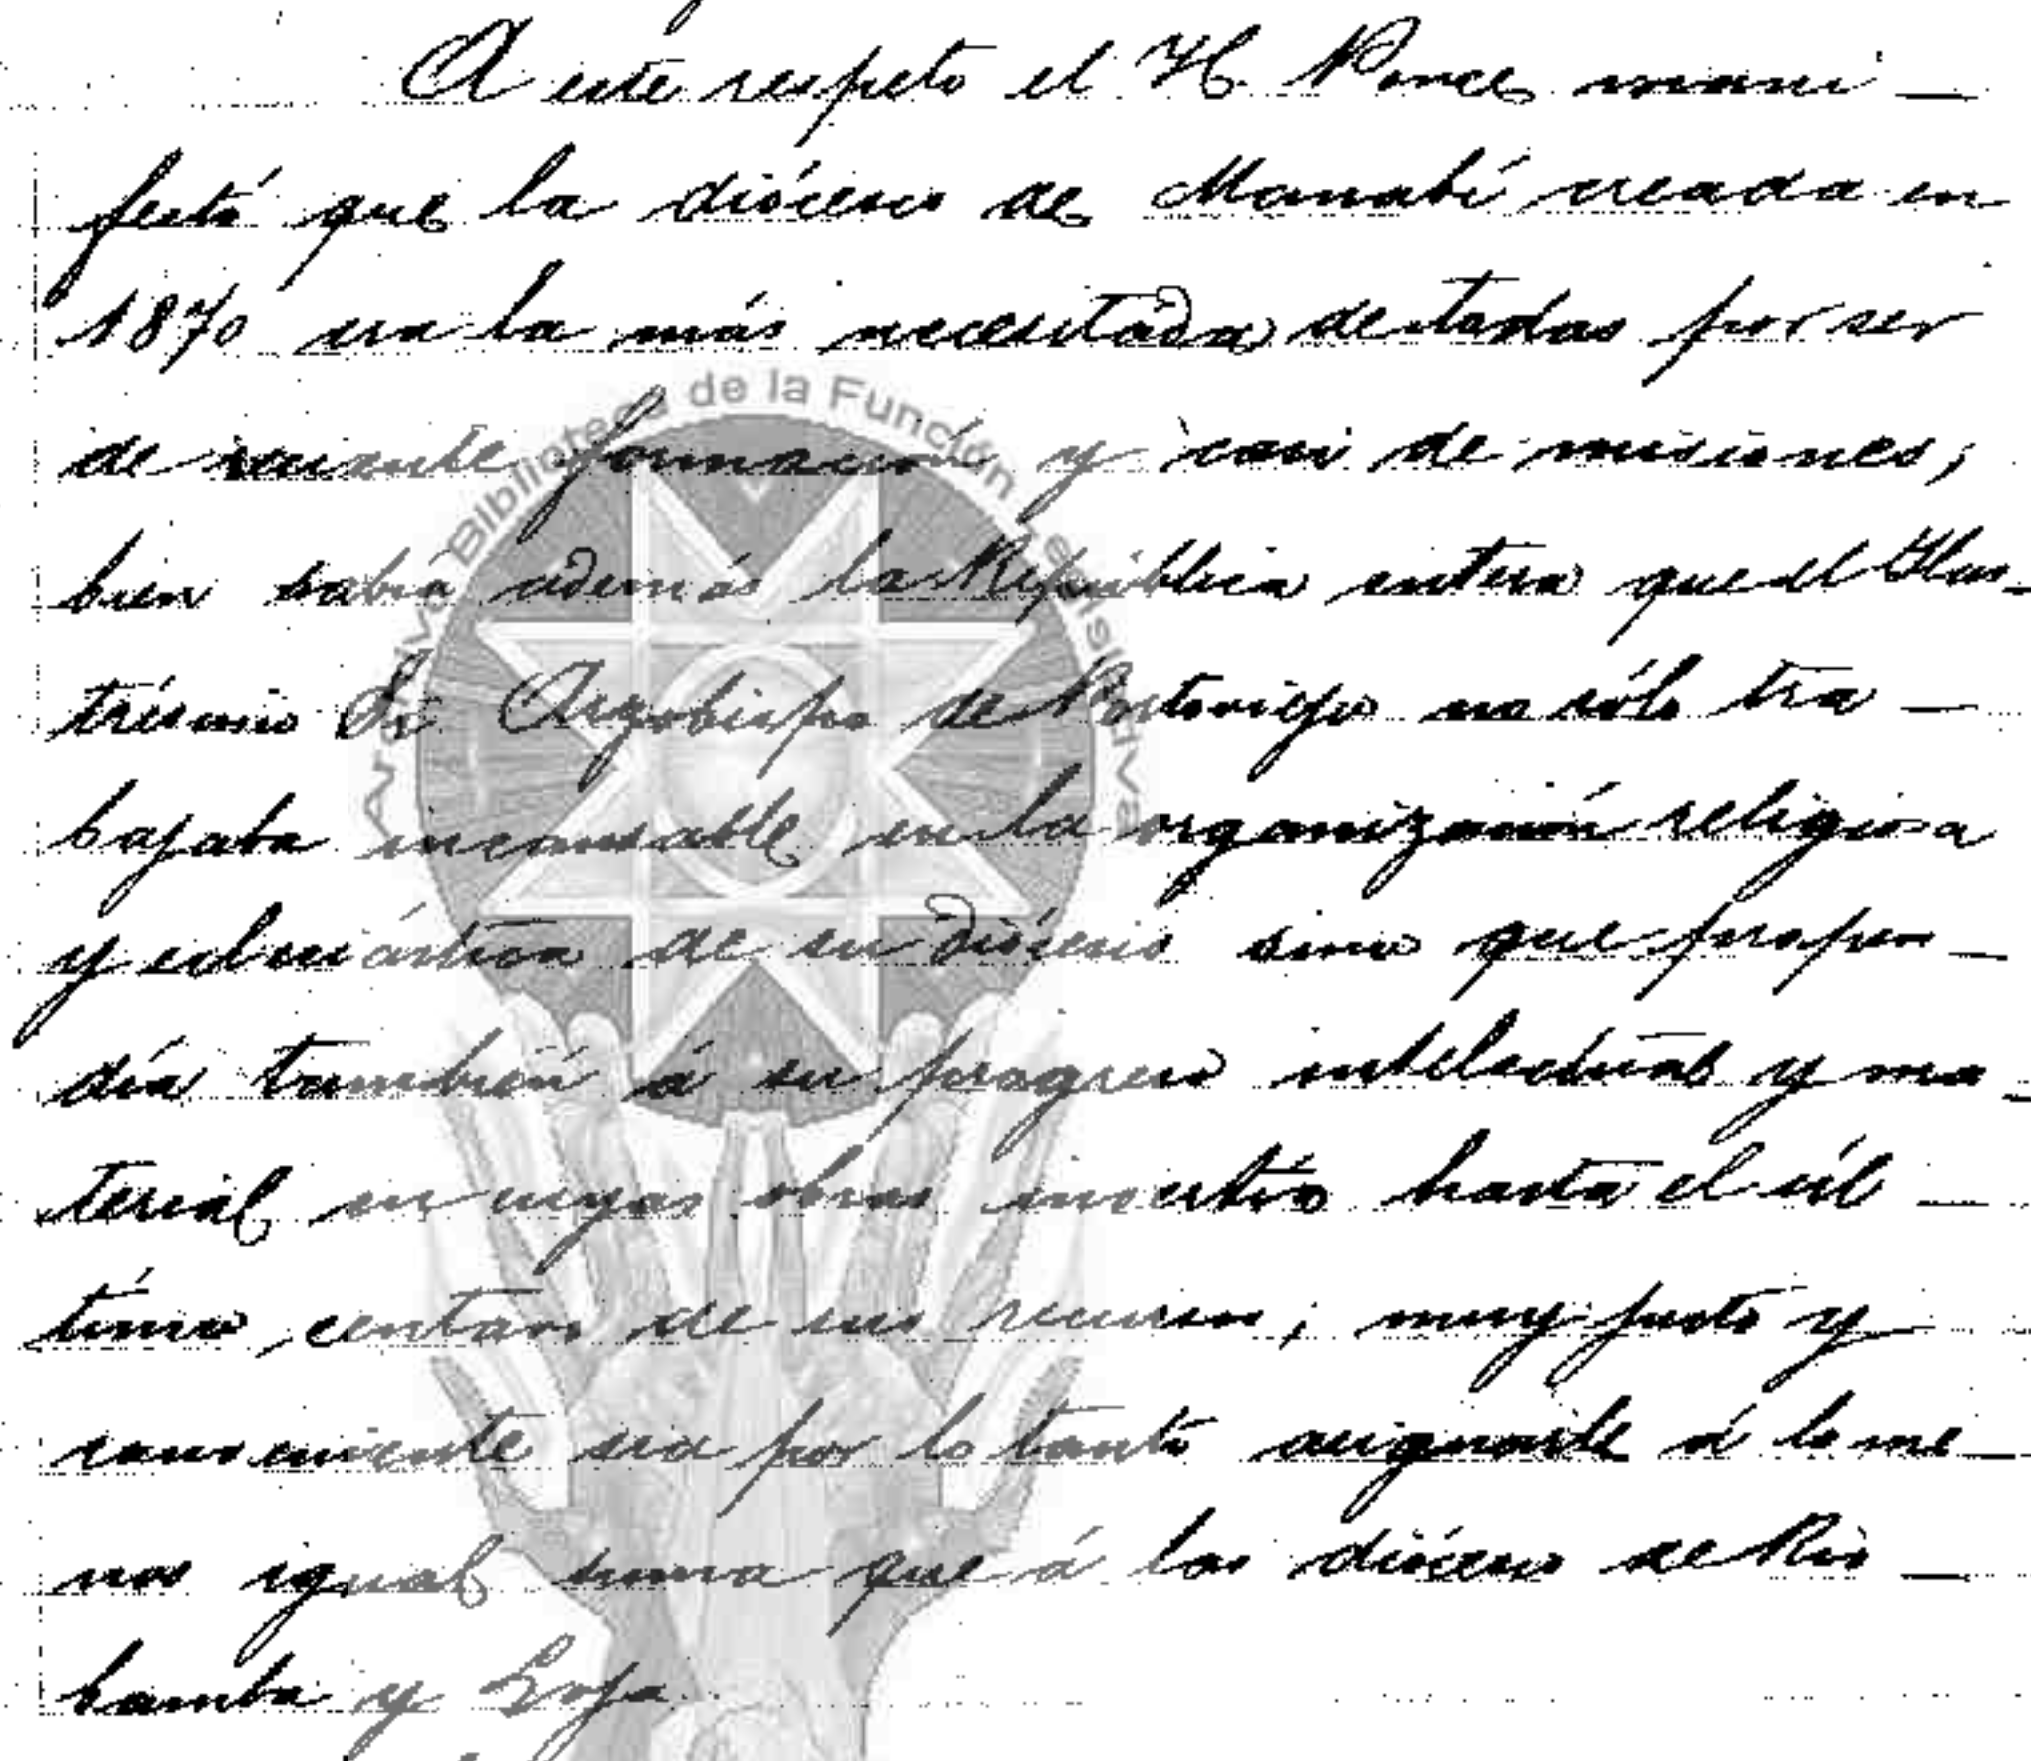 A este respeto el H. Ponce mani-
festó que la diócesis de Manabí creada en
1870 era la más necesitada de todas por ser
de reciente formación y casi de misiones;
bien sabía además la República entera que el Ilus-
trísimo Sr. Arzobispo de Portoviejo no sólo tra-
bajaba incansable en la organización religiosa
y eclesiástica de su diócesis sino que propen-
día también á su progreso intelectual y ma-
terial en cuyas obras invertía hasta el úl-
timo centavo de sus recursos; muy justo y
conveniente era por lo tanto asignarle á lo me-
nos igual suma que á las diócesis de Rio-
bamba y Loja.
Archivo Biblioteca de la Función Legislativa